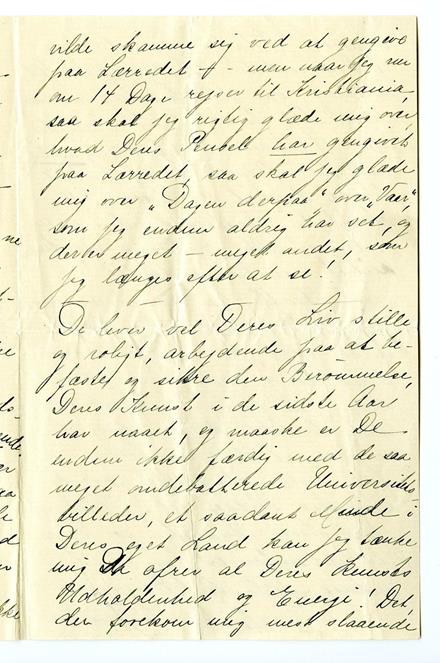 vilde skamme sig ved at gengive
paa Lærredet – – men naar jeg nu
om 14 Dage rejser til Kristiania,
saa skal jeg rigtig glæde mig over,
hvad Deres Pensel har gengivet
paa Lærredet, saa skal jeg glæde
mig over „Dagen derpaa" over „Vaar",
som jeg endnu aldrig har set, og
derover meget – meget andet, som
jeg længes efter at se!
De lever vel Deres Liv stille
og roligt, arbejdende paa at be-
fæste og sikre den Berömmelse,
Deres Kunst i de sidste Aar
har naaet, og maaske er De
endnu ikke færdig med de saa
meget omdebatterede Universitets
billeder, et saadant Minde i
Deres eget Land kan jeg tænke
mig af Deres Kunsts
Udholdenhed og Energi! Det,
der forekom mig mest slaaende